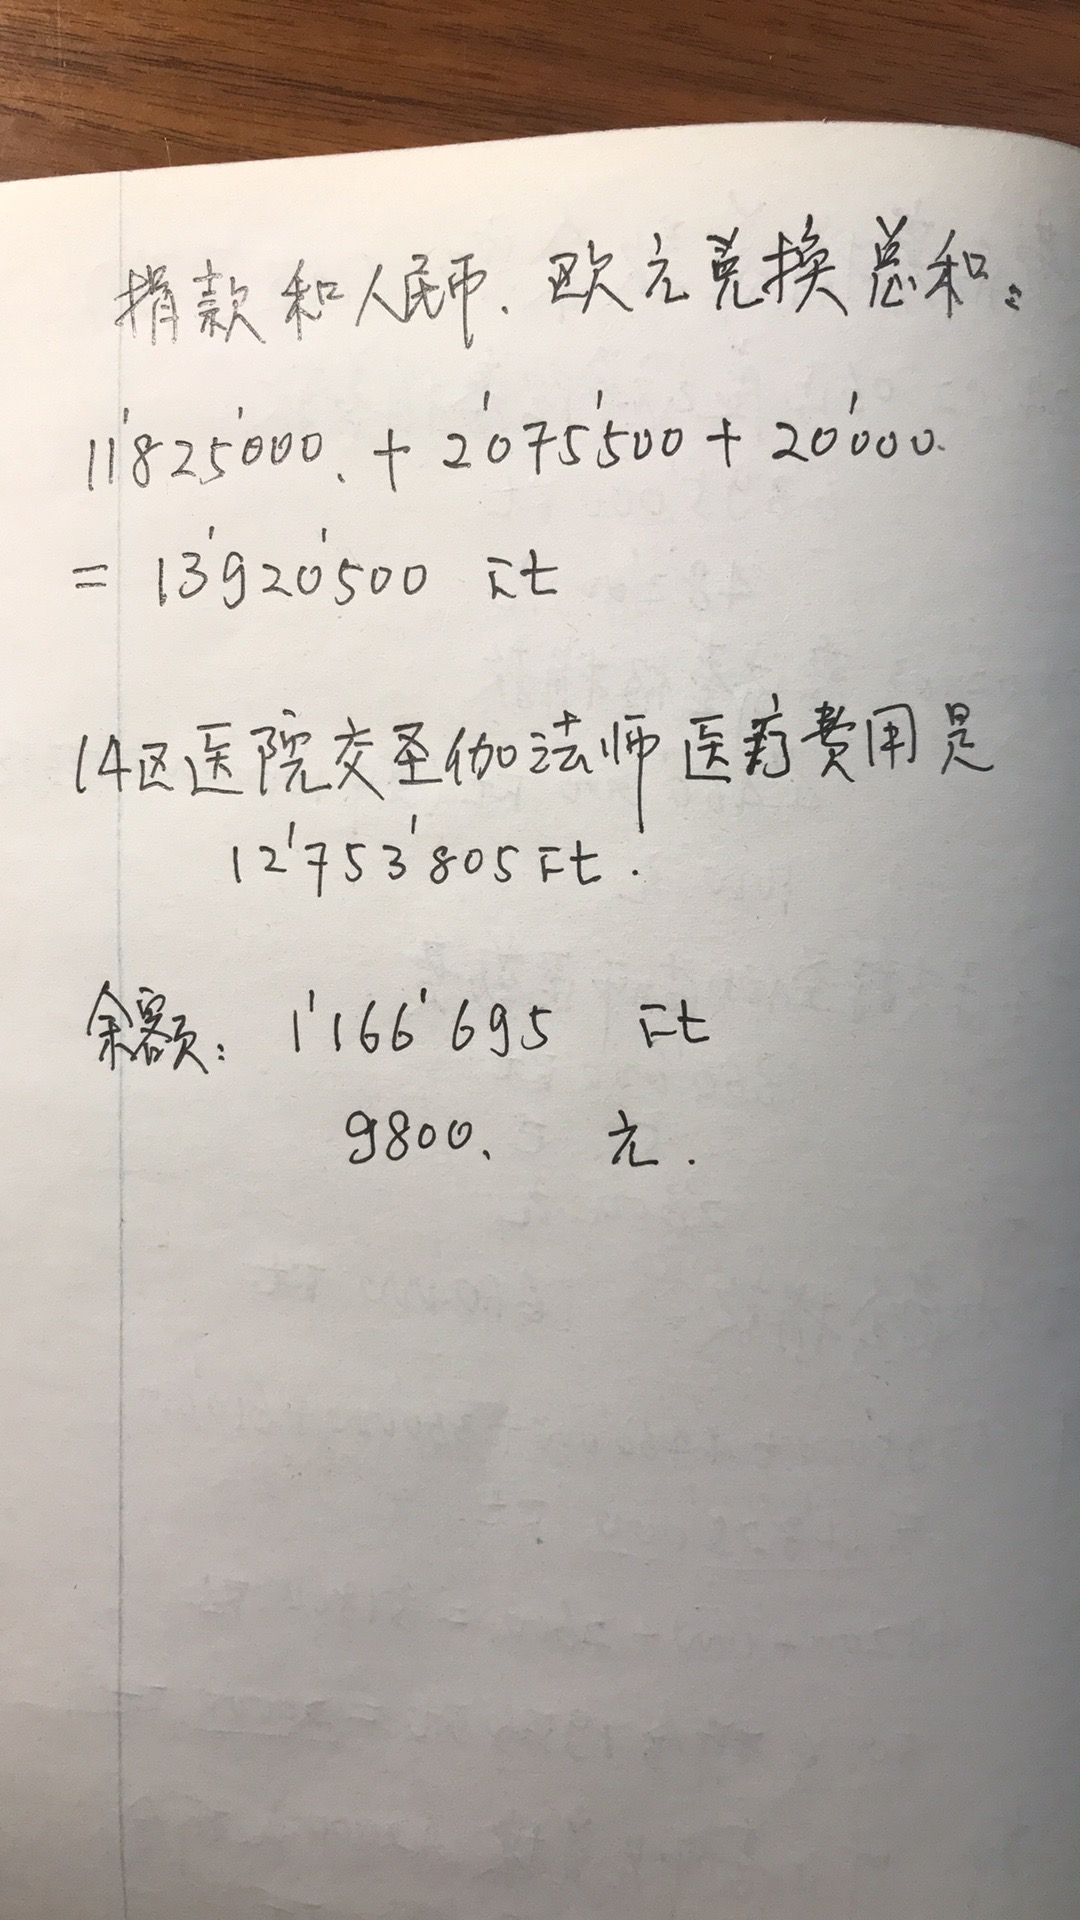 捐款和人民币、欧元兑换总和:
11'825'000. + 2'075'500 + 20'000.
= 13'920'500 Ft
14区医院交圣伽法师医疗費用是
12'753'805Ft.
余额: 1'166'695 Ft
9800. 元.